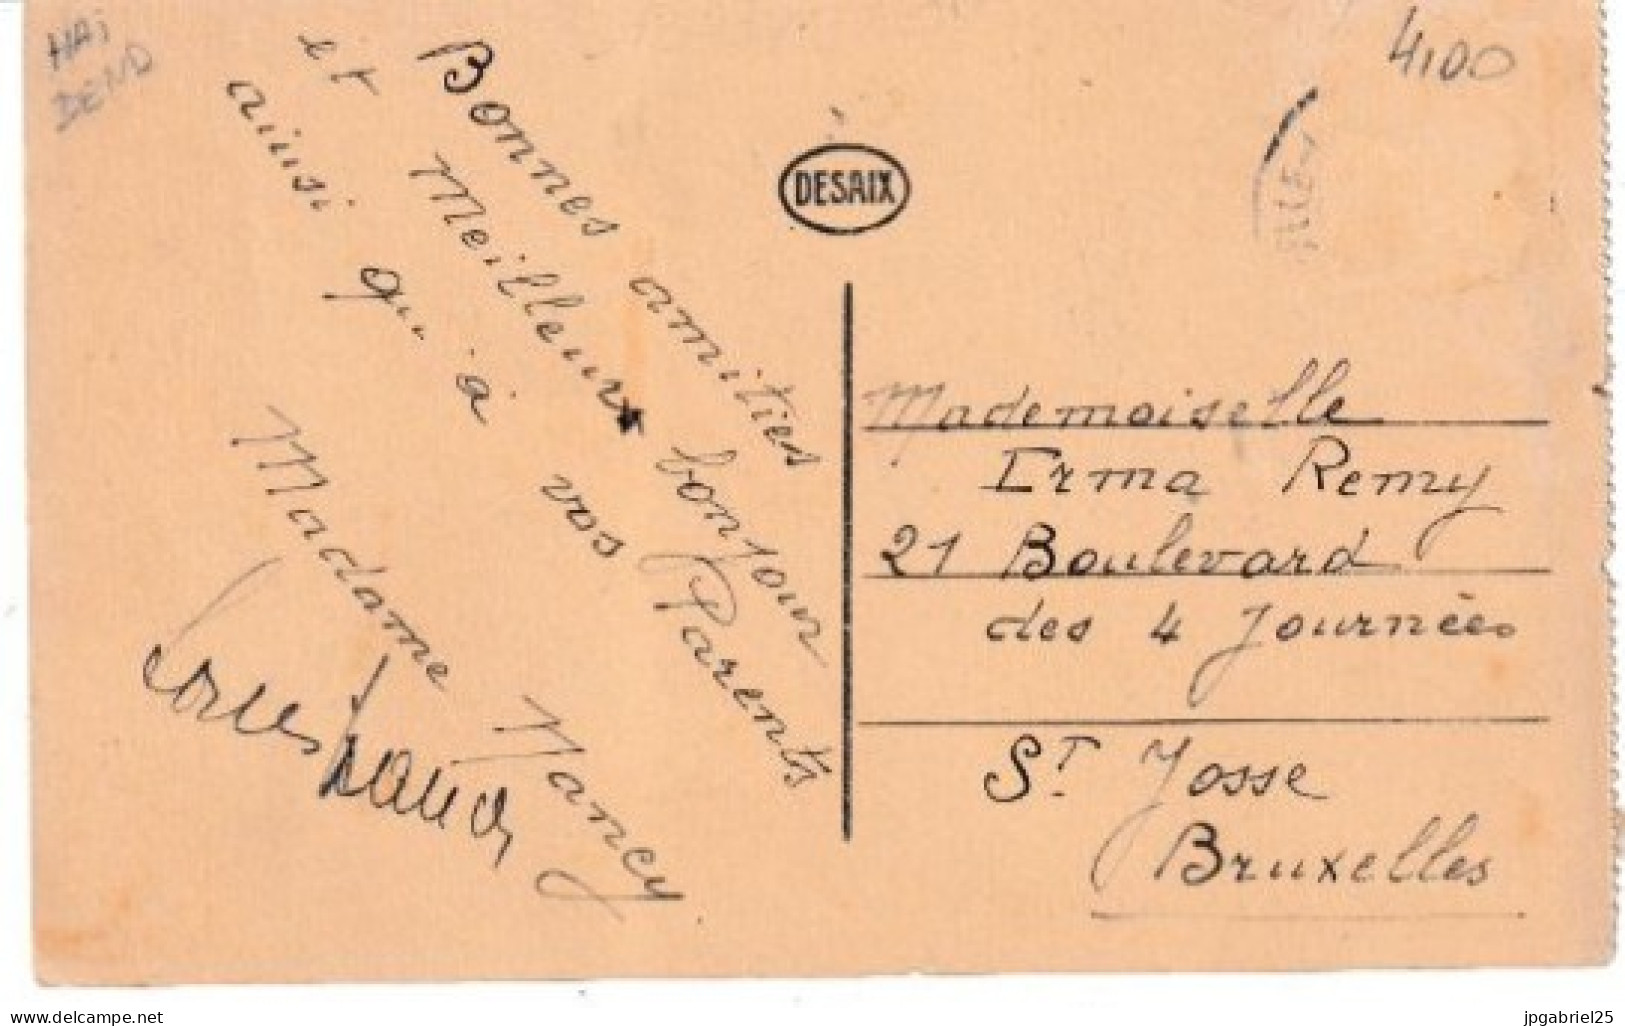 HAI
DEND
4,00
DESAIX
Bonnes amitiés
et Meilleurs bonjour
ainsi qu'à vos Parents
Madame Nancy.
Mademoiselle
Irma Remy
21 Boulevard
des 4 Journées
ST. Josse
Bruxelles
www.delcampe.net
jpgabriel25